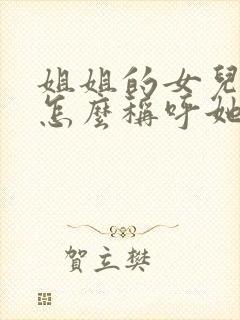 姐姐的女兒
怎麼稱呼她
賀立樊